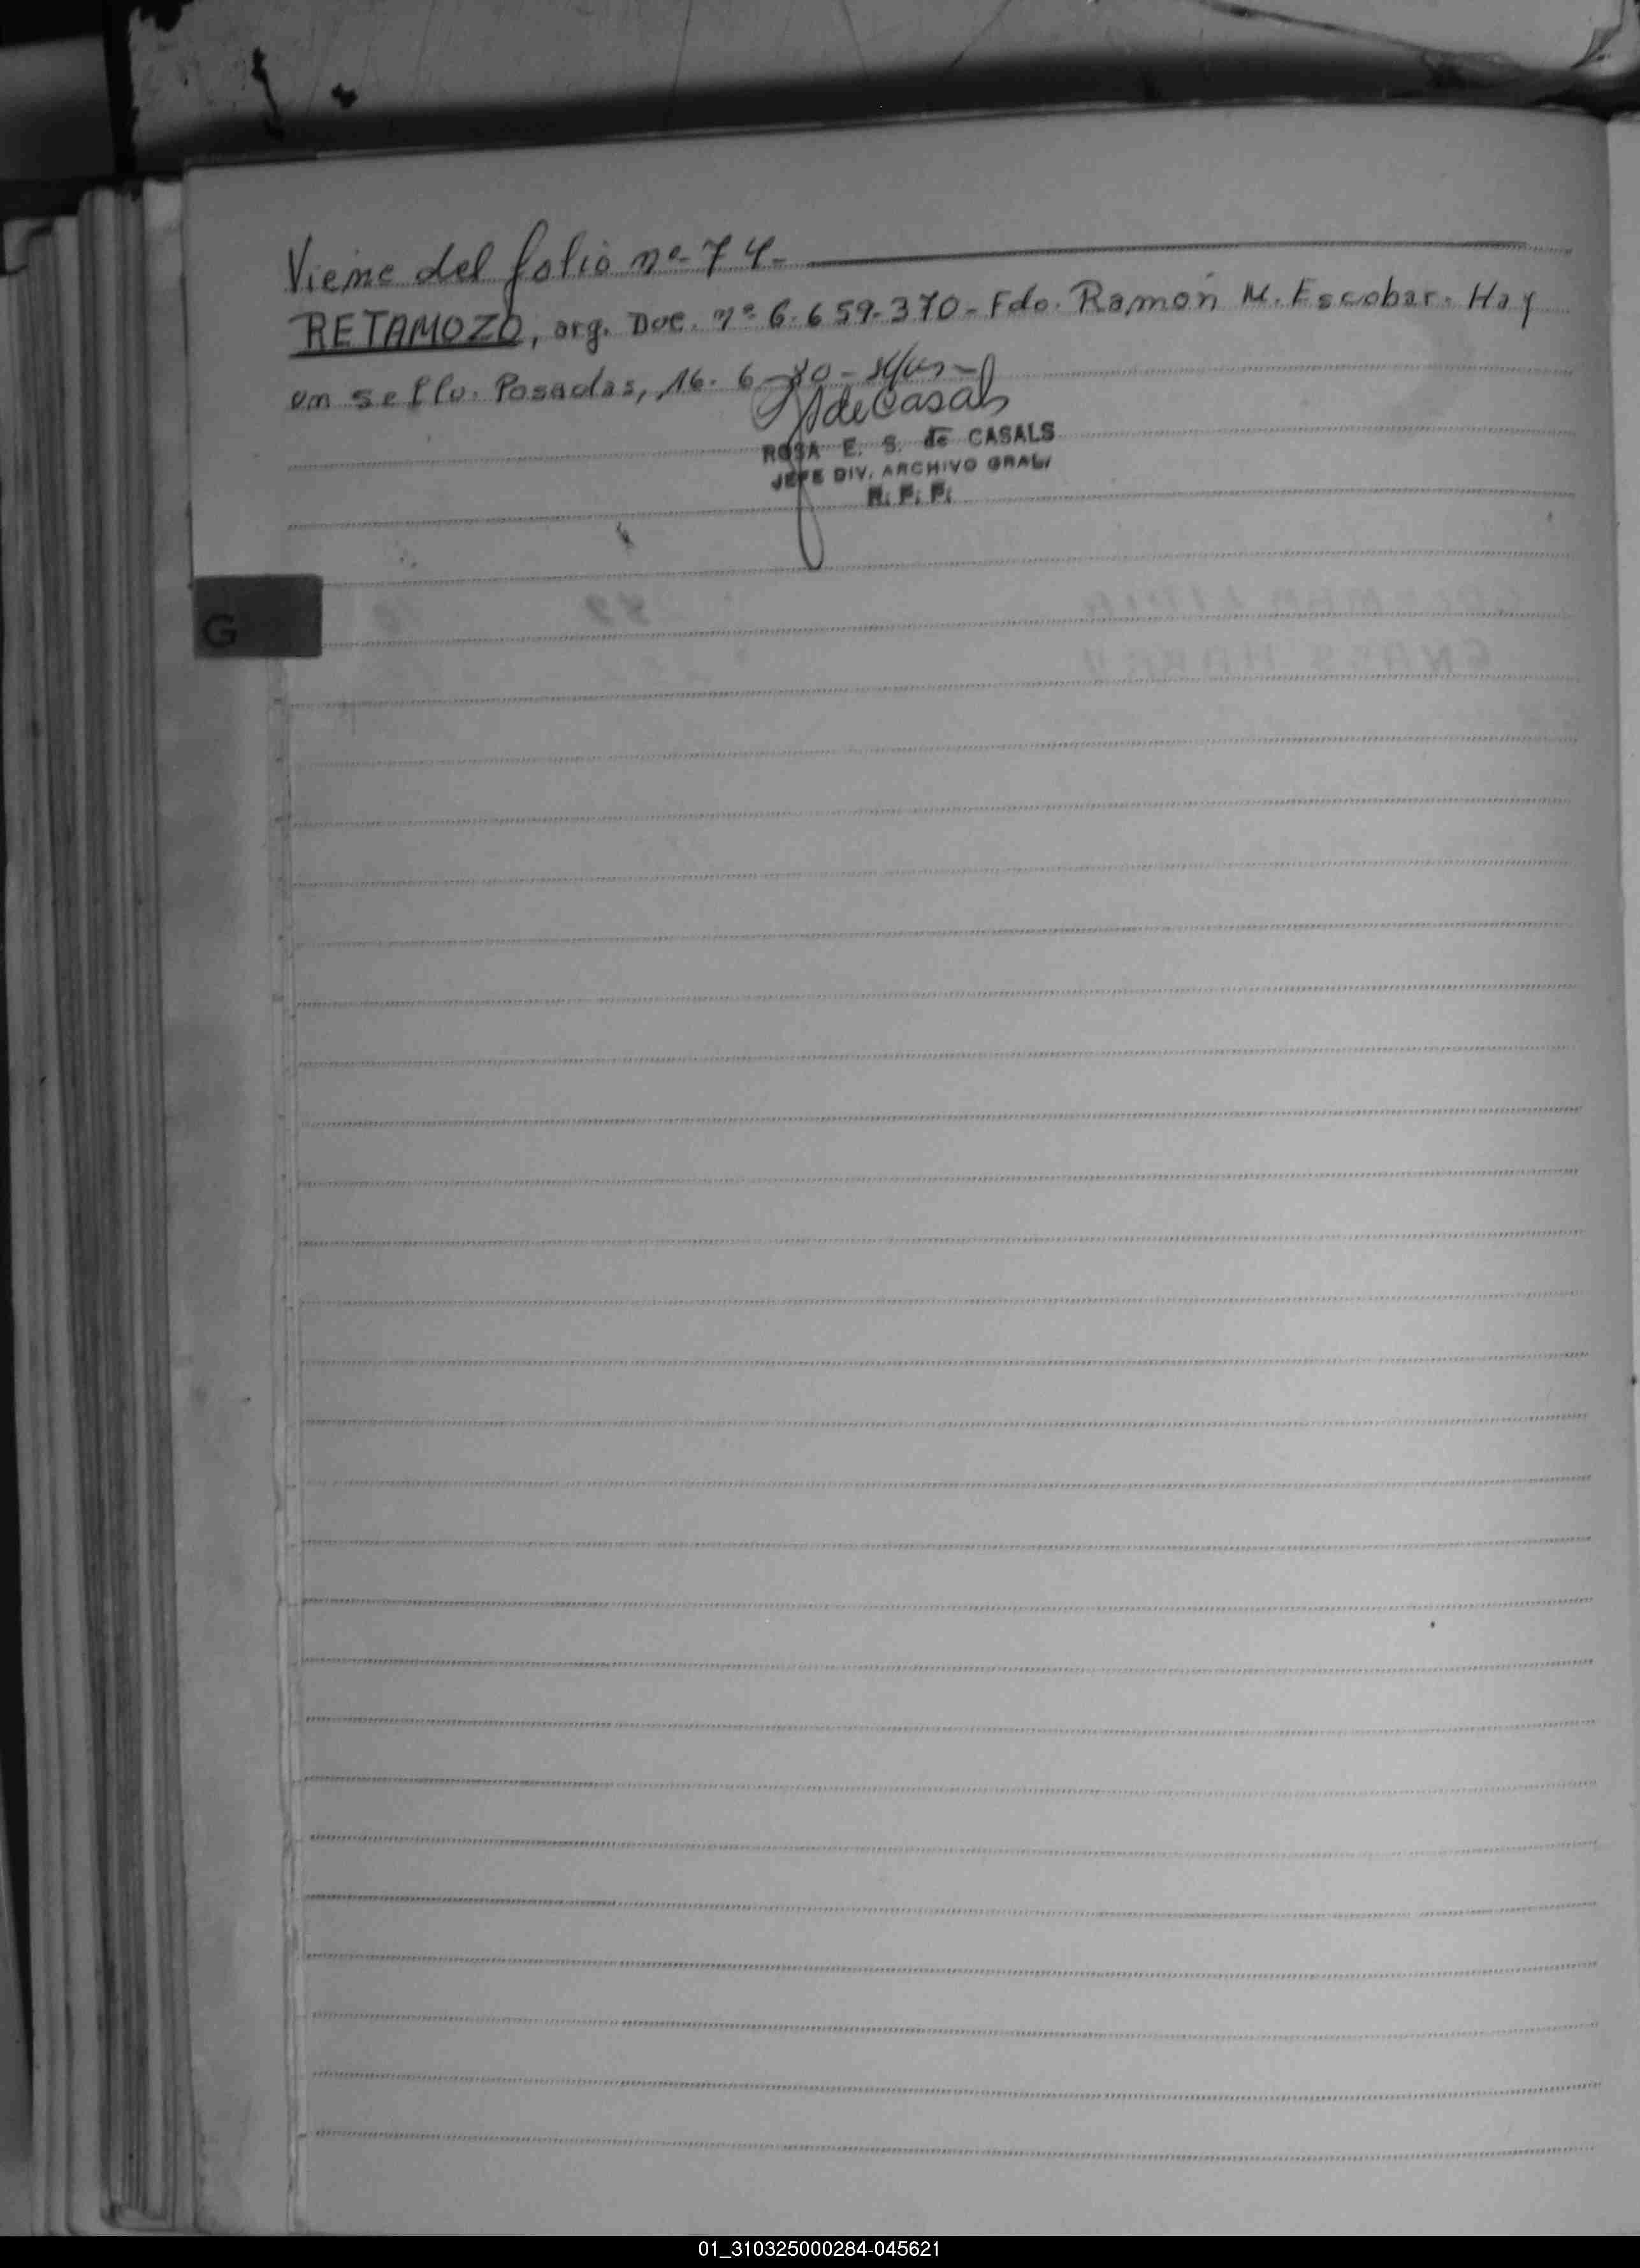 Viene del folio nº 74-
RETAMOZO, arg. Doc. nº 6.659.370- Fdo. Ramón M. Escobar. Hay
un sello. Posadas, 16. 6-80-
de Casals
ROSA E. S. de CASALS
JEFE DIV. ARCHIVO GRAL.
R. P. P.
G
01_310325000284-045621